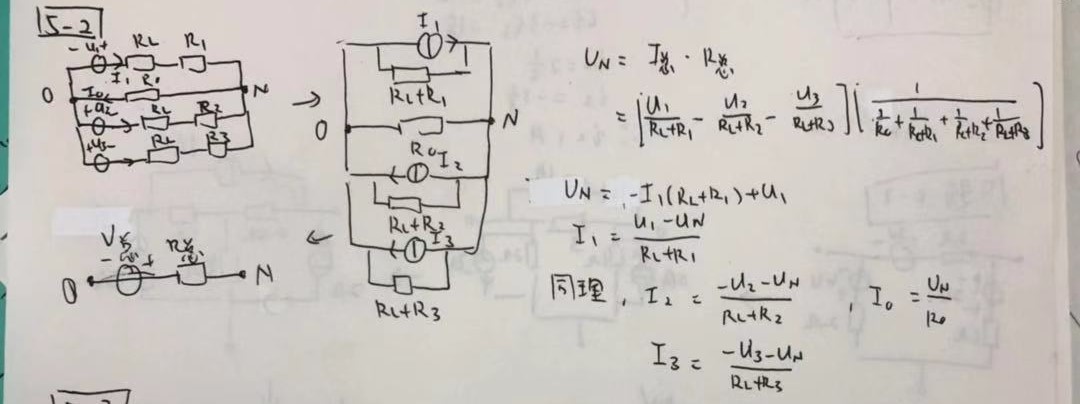 15-2
- U1 + RL R1
I1
O I0 R0 N
+ U2 - RL R2
+ U3 - RL R3
I1
RL+R1
O N
R0 I2
RL+R2
I3
RL+R3
V总
- + R总
O N
UN = I总 · R总
= [U1/(RL+R1) - U2/(RL+R2) - U3/(RL+R3)] [1/(1/R0 + 1/(RL+R1) + 1/(RL+R2) + 1/(RL+R3))]
UN = -I1(RL+R1)+U1
I1 = (U1-UN)/(RL+R1)
同理, I2 = (-U2-UN)/(RL+R2), I0 = UN/R0
I3 = (-U3-UN)/(RL+R3)